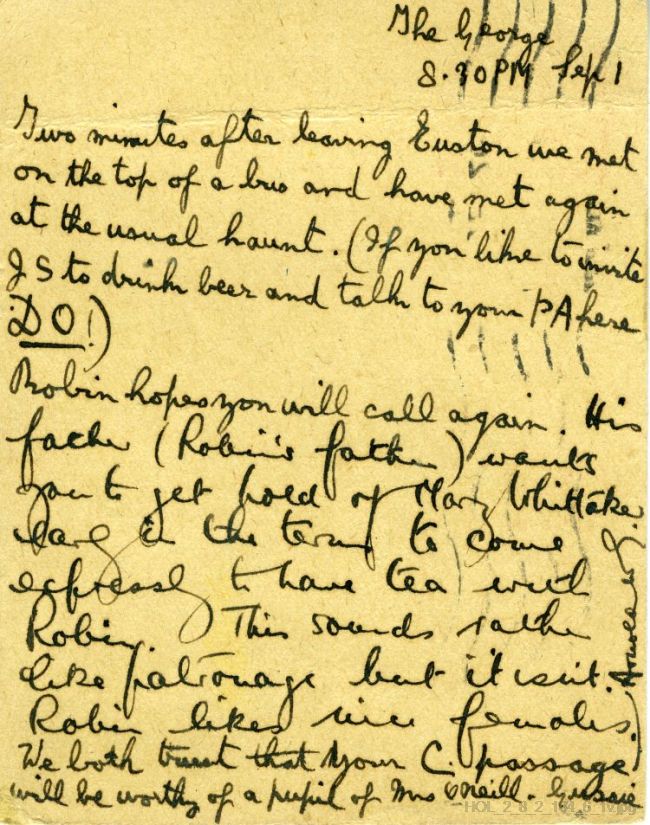 The George
8.30PM Sep 1
Two minutes after leaving Euston we met
on the top of a bus and have met again
at the usual haunt. (If you like to invite
JS to drink beer and talk to your PA here
DO!)
Robin hopes you will call again. His
father (Robin's father) wants
you to get hold of Mary Whittaker
early in the term to come
expressly to have tea with
Robin. This sounds rather
like patronage but it isn't.
Robin likes nice females.
We both trust that your C. passage
will be worthy of a pupil of Mrs O'Neill. Gussie
HOL_2_8_2_